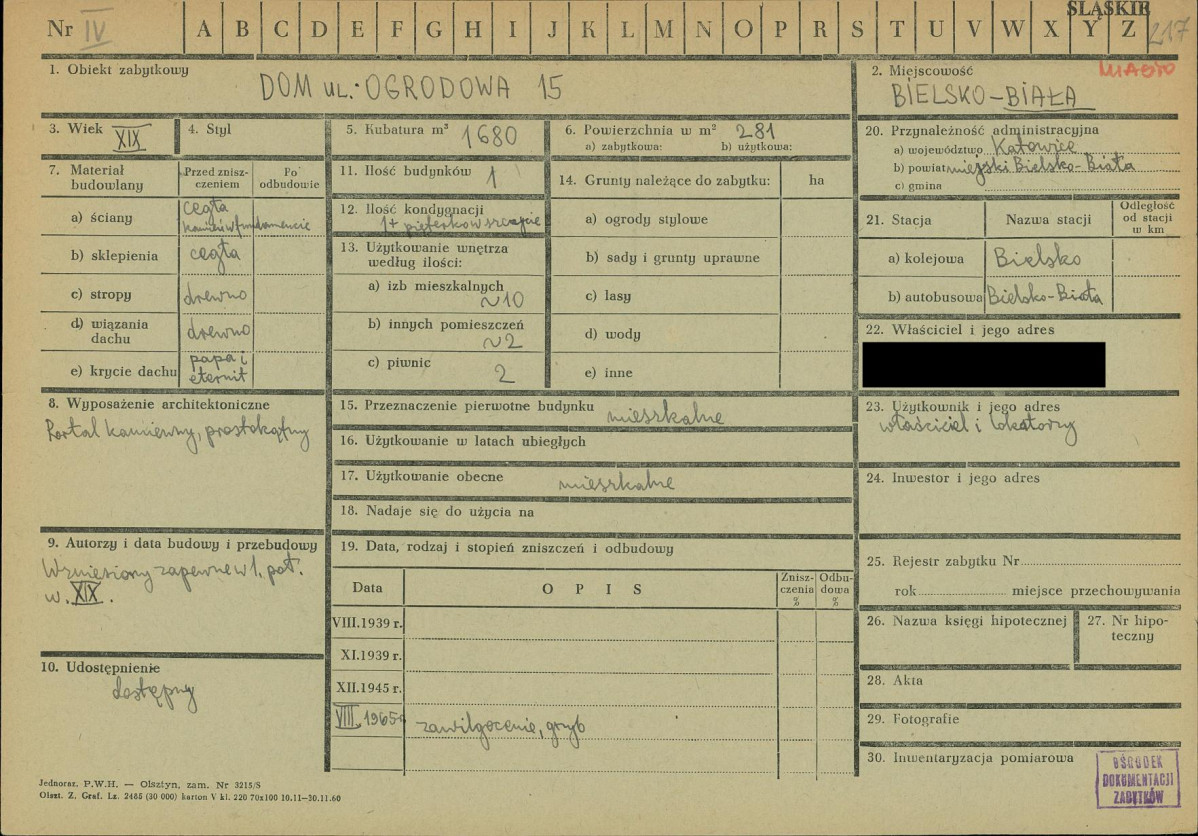 Nr IV A B C D E F G H I J K L M N O P R S T U V W X Y Z
ŚLĄSKIE
217
1. Obiekt zabytkowy
DOM ul. OGRODOWA 15
2. Miejscowość
MIASTO
BIELSKO-BIAŁA
3. Wiek XIX
4. Styl
5. Kubatura m³ 1680
6. Powierzchnia w m² 281
a) zabytkowa: b) użytkowa:
20. Przynależność administracyjna
a) województwo Katowice
b) powiat miejski Bielsko-Biała
c) gmina
7. Materiał budowlany
Przed znisz-
czeniem
Po
odbudowie
a) ściany cegła
kamień w fundamencie
b) sklepienia cegła
c) stropy drewno
d) wiązania
dachu drewno
e) krycie dachu papa i
eternit
11. Ilość budynków 1
12. Ilość kondygnacji
1 + pięterko w szczycie
13. Użytkowanie wnętrza
według ilości:
a) izb mieszkalnych
~10
b) innych pomieszczeń
~2
c) piwnic
2
14. Grunty należące do zabytku: ha
a) ogrody stylowe
b) sady i grunty uprawne
c) lasy
d) wody
e) inne
21. Stacja Nazwa stacji
Odległość
od stacji
w km
a) kolejowa Bielsko
b) autobusowa Bielsko-Biała
22. Właściciel i jego adres
8. Wyposażenie architektoniczne
Portal kamienny, prostokątny
15. Przeznaczenie pierwotne budynku mieszkalne
16. Użytkowanie w latach ubiegłych
17. Użytkowanie obecne mieszkalne
18. Nadaje się do użycia na
23. Użytkownik i jego adres
właściciel i lokatorzy
24. Inwestor i jego adres
9. Autorzy i data budowy i przebudowy
Wzniesiony zapewne w 1. poł.
w. XIX.
10. Udostępnienie
dostępny
19. Data, rodzaj i stopień zniszczeń i odbudowy
Data OPIS
Znisz-
czenia
%
Odbu-
dowa
%
VIII.1939 r.
XI.1939 r.
XII.1945 r.
VIII.1965 r. zawilgocenie, grzyb
25. Rejestr zabytku Nr
rok miejsce przechowywania
26. Nazwa księgi hipotecznej
27. Nr hipo-
teczny
28. Akta
29. Fotografie
30. Inwentaryzacja pomiarowa
OŚRODEK
DOKUMENTACJI
ZABYTKÓW
Jednoraz. P.W.H. — Olsztyn, zam. Nr 3215/S
Olszt. Z. Graf. Lz. 2485 (30 000) karton V kl. 220 70x100 10.11—30.11.60